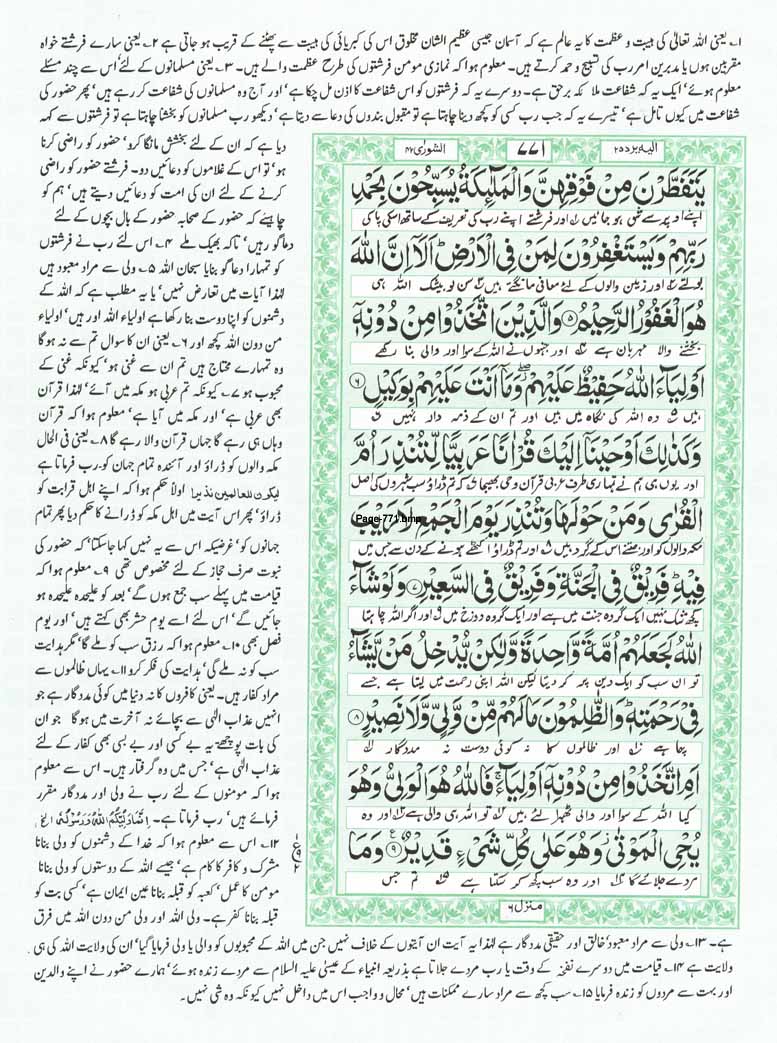 ۱۔ یعنی اللہ تعالیٰ کی ہیبت و عظمت کا یہ عالم ہے کہ آسمان جیسی عظیم الشان مخلوق اس کی کبریائی کی ہیبت سے پھٹنے کے قریب ہو جاتی ہے ۲۔ یعنی سارے فرشتے خواہ
مقربین ہوں یا مدبرین امر رب کی تسبیح و حمد کرتے ہیں۔ معلوم ہوا کہ نمازی مومن فرشتوں کی طرح عظمت والے ہیں۔ ۳۔ یعنی مسلمانوں کے لئے اس سے چند مسئلے
معلوم ہوئے ایک یہ کہ شفاعت ملائکہ برحق ہے۔ دوسرے یہ کہ فرشتوں کو اس شفاعت کا اذن مل چکا ہے، اور آج وہ مسلمانوں کی شفاعت کر رہے ہیں، پھر حضور کی
شفاعت میں کیوں تامل ہے، تیسرے یہ کہ جب رب کسی کو کچھ دینا چاہتا ہے تو مقبول بندوں کی دعا سے دیتا ہے، دیکھو رب مسلمانوں کو بخشنا چاہتا ہے تو فرشتوں سے کہہ
دیا ہے کہ ان کے لئے بخشش مانگا کرو، حضور کو راضی کرنا
ہو، تو اس کے غلاموں کو دعائیں دو۔ فرشتے حضور کو راضی
کرنے کے لئے ان کی امت کو دعائیں دیتے ہیں، ہم کو
چاہیئے کہ حضور کے صحابہ حضور کے بال بچوں کے لئے
دعا گو رہیں، تاکہ بھیک ملے ۴۔ اس لئے رب نے فرشتوں
کو تمہارا دعا گو بنایا سبحان اللہ ۵۔ ولی سے مراد معبود ہیں
لہٰذا آیات میں تعارض نہیں، یا یہ مطلب ہے کہ اللہ کے
دشمنوں کو اپنا دوست بنا رکھا ہے اولیاء اللہ اور ہیں، اولیاء
من دون اللہ کچھ اور ۶۔ یعنی ان کا سوال تم سے نہ ہو گا
وہ تمہارے محتاج ہیں تم ان سے غنی ہو، کیونکہ غنی کے
محبوب ہو ۷۔ کیونکہ تم عربی ہو مکہ میں آئے، لہٰذا قرآن
بھی عربی ہے، اور مکہ میں آیا ہے، معلوم ہوا کہ قرآن
وہاں ہی رہے گا جہاں قرآن والا رہے گا ۸۔ یعنی فی الحال
مکہ والوں کو ڈراؤ اور آئندہ تمام جہان کو۔ رب فرماتا ہے
لیکون للعالمین نذیرا اولاً حکم ہوا کہ اپنے اہل قرابت کو
ڈراؤ، پھر اس آیت میں اہل مکہ کو ڈرانے کا حکم دیا پھر تمام
جہانوں کو، غرضیکہ اس سے یہ نہیں کہا جا سکتا، کہ حضور کی
نبوت صرف حجاز کے لئے مخصوص تھی ۹۔ معلوم ہوا کہ
قیامت میں پہلے سب جمع ہوں گے، بعد کو علیحدہ علیحدہ ہو
جائیں گے، اس لئے اسے یوم حشر بھی کہتے ہیں، اور یوم
فصل بھی ۱۰۔ معلوم ہوا کہ رزق سب کو ملے گا، مگر ہدایت
سب کو نہ ملے گی، ہدایت کی فکر کرو ۱۱۔ یہاں ظالموں سے
مراد کفار ہیں۔ یعنی کافروں کا نہ دنیا میں کوئی مددگار ہے جو
انہیں عذاب الٰہی سے بچائے نہ آخرت میں ہو گا جو ان
کی بات پوچھے، یہ بے کسی اور بے بسی بھی کفار کے لئے
عذاب الٰہی ہے، جس میں وہ گرفتار ہیں۔ اس سے معلوم
ہوا کہ مومنوں کے لئے رب نے ولی اور مددگار مقرر
فرمائے ہیں، رب فرماتا ہے۔ انما ولیکم اللہ ورسولہ الخ
۱۲۔ اس سے معلوم ہوا کہ خدا کے دشمنوں کو ولی بنانا
مشرک و کافر کا کام ہے، جیسے اللہ کے دوستوں کو ولی بنانا
مومن کا عمل، کعبہ کو قبلہ بنانا عین ایمان ہے، کسی بت کو
قبلہ بنانا کفر ہے۔ ولی اللہ اور ولی من دون اللہ میں فرق
الیہ یرد ۲۵
۷۷۱
الشوریٰ ۴۲
يَتَفَطَّرْنَ مِنْ فَوْقِهِنَّ وَالْمَلٰٓئِكَةُ يُسَبِّحُوْنَ بِحَمْدِ
اپنے اوپر سے شق ہو جائیں اور فرشتے اپنے رب کی تعریف کے ساتھ اسکی پاکی
رَبِّهِمْ وَيَسْتَغْفِرُوْنَ لِمَنْ فِى الْاَرْضِ ؕ اَلَاۤ اِنَّ اللّٰهَ
بولتے اور زمین والوں کے لئے معافی مانگتے ہیں سن لو بیشک اللہ ہی
هُوَ الْغَفُوْرُ الرَّحِيْمُ ۵ وَالَّذِيْنَ اتَّخَذُوْا مِنْ دُوْنِهٖۤ
بخشنے والا مہربان ہے اور جنہوں نے اللہ کے سوا اور والی بنا رکھے
اَوْلِيَآءَ اللّٰهُ حَفِيْظٌ عَلَيْهِمْ ۖ وَمَاۤ اَنْتَ عَلَيْهِمْ بِوَكِيْلٍ ۶
ہیں وہ اللہ کی نگاہ میں ہیں اور تم ان کے ذمہ دار نہیں
وَكَذٰلِكَ اَوْحَيْنَاۤ اِلَيْكَ قُرْاٰنًا عَرَبِيًّا لِّتُنْذِرَ اُمَّ
اور یوں ہی ہم نے تمہاری طرف عربی قرآن وحی بھیجا کہ تم ڈراؤ سب شہروں کی اصل
الْقُرٰى وَمَنْ حَوْلَهَا وَتُنْذِرَ يَوْمَ الْجَمْعِ لَا رَيْبَ
Page-771.bmp
مکہ والوں کو اور جتنے اس کے گرد ہیں اور تم ڈراؤ اکٹھے ہونے کے دن سے جس میں
فِيْهِ ؕ فَرِيْقٌ فِى الْجَنَّةِ وَفَرِيْقٌ فِى السَّعِيْرِ ۷ وَلَوْ شَآءَ
کچھ شک نہیں ایک گروہ جنت میں ہے اور ایک گروہ دوزخ میں اور اگر اللہ چاہتا
اللّٰهُ لَجَعَلَهُمْ اُمَّةً وَّاحِدَةً وَّلٰكِنْ يُّدْخِلُ مَنْ يَّشَآءُ
تو ان سب کو ایک دین پر کر دیتا لیکن اللہ اپنی رحمت میں لیتا ہے جسے
فِىْ رَحْمَتِهٖ ؕ وَالظّٰلِمُوْنَ مَا لَهُمْ مِّنْ وَّلِىٍّ وَّلَا نَصِيْرٍ ۸
چاہے اور ظالموں کا نہ کوئی دوست نہ مددگار
اَمِ اتَّخَذُوْا مِنْ دُوْنِهٖۤ اَوْلِيَآءَ ۚ فَاللّٰهُ هُوَ الْوَلِىُّ وَهُوَ
کیا اللہ کے سوا اور والی ٹھہرا لئے ہیں تو اللہ ہی والی ہے اور وہ
يُحْىِ الْمَوْتٰى ۡ وَهُوَ عَلٰى كُلِّ شَىْءٍ قَدِيْرٌ ۹ وَمَا
مردے جلائے گا اور وہ سب کچھ کر سکتا ہے تم جس
منزل ۶
ہے۔ ۱۳۔ ولی سے مراد معبود، خالق اور حقیقی مددگار ہے لہٰذا یہ آیت ان آیتوں کے خلاف نہیں جن میں اللہ کے محبوبوں کو والی یا ولی فرمایا گیا، ان کی ولایت اللہ کی ہی
ولایت ہے ۱۴۔ قیامت میں دوسرے نفخہ کے وقت یا رب مردے جلاتا ہے بذریعہ انبیاء کے عیسیٰ علیہ السلام سے مردے زندہ ہوئے، ہمارے حضور نے اپنے والدین
اور بہت سے مردوں کو زندہ فرمایا ۱۵۔ سب کچھ سے مراد سارے ممکنات ہیں، محال و واجب اس میں داخل نہیں کیونکہ وہ شی نہیں۔